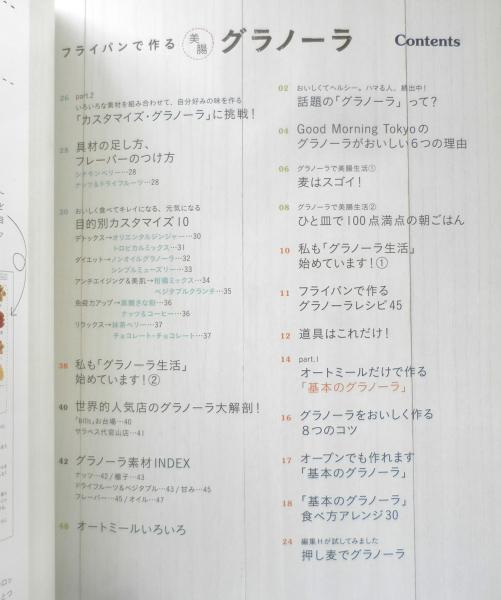 フライパンで作る 美腸 グラノーラ Contents
02 おいしくてヘルシー。ハマる人、続出中!
話題の「グラノーラ」って?
04 Good Morning Tokyoの
グラノーラがおいしい6つの理由
06 グラノーラで美腸生活①
麦はスゴイ!
08 グラノーラで美腸生活②
ひと皿で100点満点の朝ごはん
10 私も「グラノーラ生活」
始めています!①
11 フライパンで作る
グラノーラレシピ45
12 道具はこれだけ!
14 part.1
オートミールだけで作る
「基本のグラノーラ」
16 グラノーラをおいしく作る
8つのコツ
17 オーブンでも作れます
「基本のグラノーラ」
18 「基本のグラノーラ」
食べ方アレンジ30
24 編集Hが試してみました
押し麦でグラノーラ
26 part.2
いろいろな素材を組み合わせて、自分好みの味を作る
「カスタマイズ・グラノーラ」に挑戦!
28 具材の足し方、
フレーバーのつけ方
シナモンベリー…28
ナッツ&ドライフルーツ…28
30 おいしく食べてキレイになる、元気になる
目的別カスタマイズ10
デトックス→オリエンタルジンジャー…30
トロピカルミックス…31
ダイエット→ノンオイルグラノーラ…32
シンプルミューズリー…33
アンチエイジング&美肌→柑橘ミックス…34
ベジタブルクランチ…35
免疫力アップ→黒糖きな粉…36
ナッツ&コーヒー…36
リラックス→抹茶ベリー…37
チョコレート・チョコレート…37
38 私も「グラノーラ生活」
始めています!②
40 世界的人気店のグラノーラ大解剖!
「Bills」お台場…40
サラベス代官山店…41
42 グラノーラ素材INDEX
ナッツ…42/種子…43
ドライフルーツ&ベジタブル…43/甘み…45
フレーバー…45/オイル…47
48 オートミールいろいろ